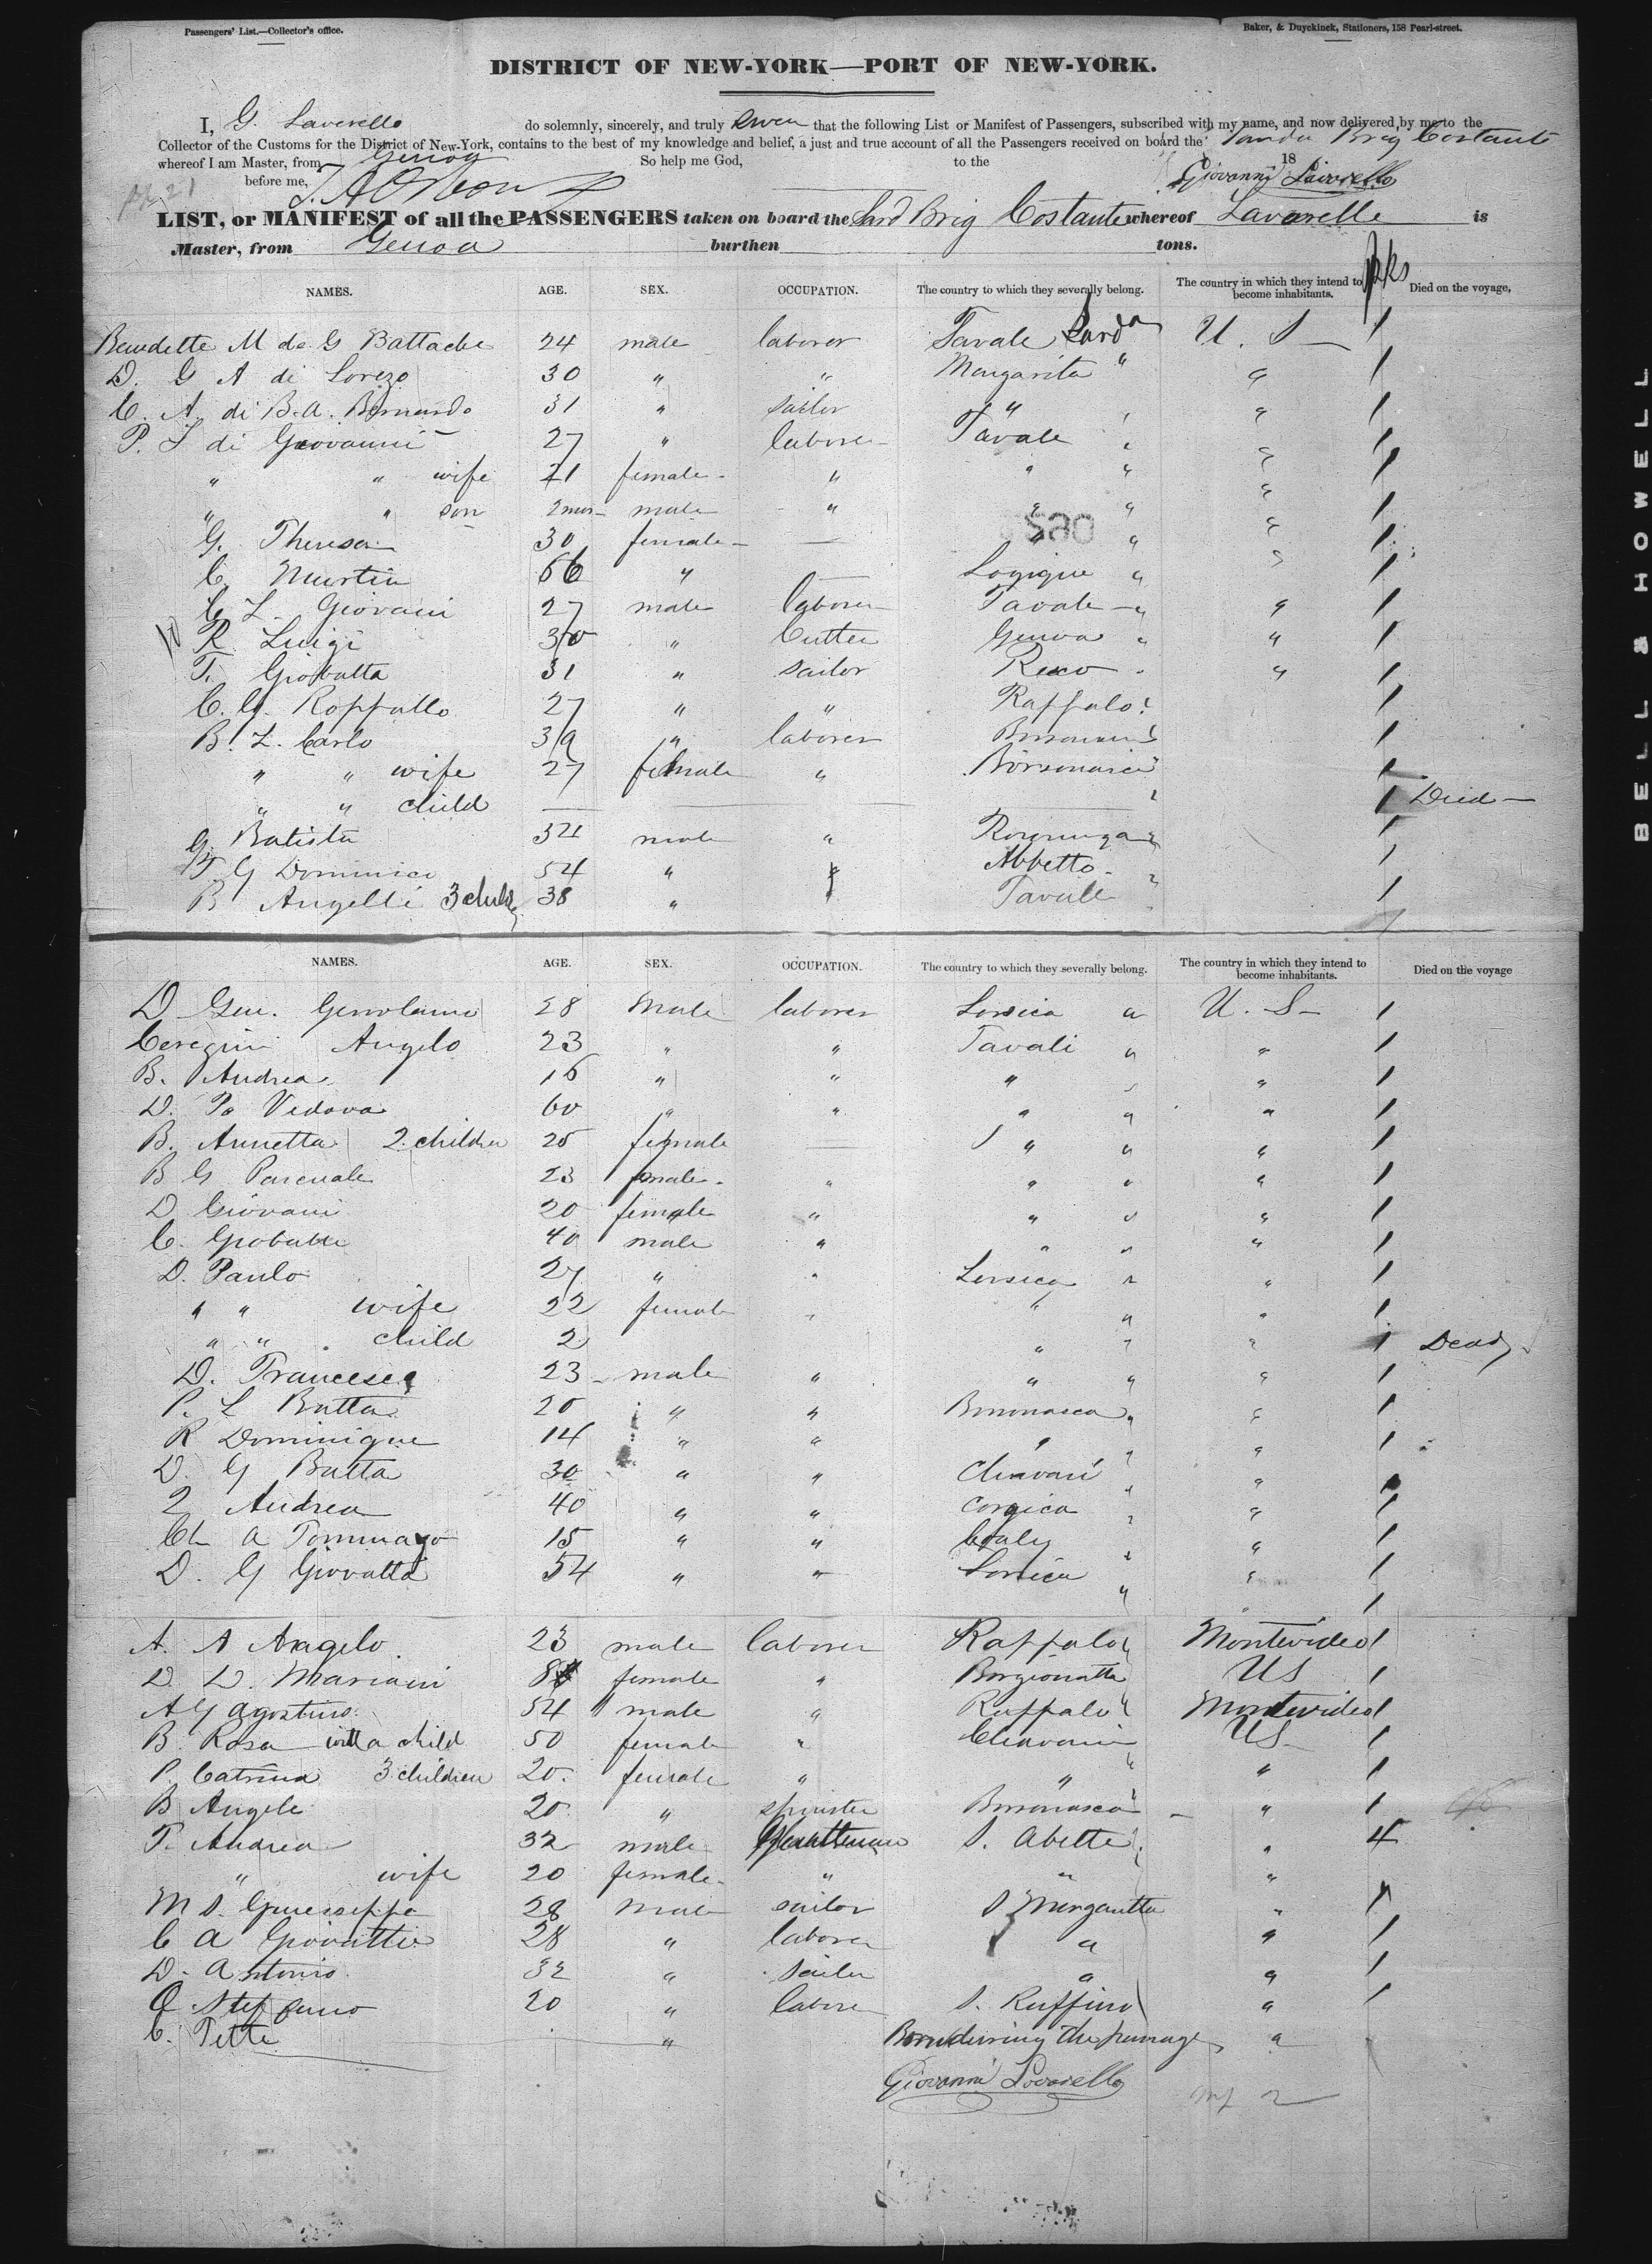 Passengers' List.—Collector's office. Baker, & Duyckinck, Stationers, 158 Pearl-street.
DISTRICT OF NEW-YORK—PORT OF NEW-YORK.
I, G. Lavarello do solemnly, sincerely, and truly swear that the following List or Manifest of Passengers, subscribed with my name, and now delivered by me to the
Collector of the Customs for the District of New-York, contains to the best of my knowledge and belief, a just and true account of all the Passengers received on board the Brig Costante
whereof I am Master, from Genoa So help me God, to the 18
before me, Giovanni Lavarello
LIST, or MANIFEST of all the PASSENGERS taken on board the Sard Brig Costante whereof Lavarello is
Master, from Genoa burthen tons.
NAMES. AGE. SEX. OCCUPATION. The country to which they severally belong. The country in which they intend to become inhabitants. pks Died on the voyage,
Benedette M de G Battache 24 male laborer Tavale Sarda U. S 1
D. G A di Lorezo 30 " " Mangarita " " 1
C. A. di B. A. Bernardo 31 " sailor " " " 1
P. L di Giovanni 27 " laborer Tavale " " 1
" " wife 21 female " " " " 1
" " son 2 mos male " " " " 1
G. Theresa 30 female — " " " 1
C. Martin 66 " — " " 1
C L. Giovani 27 male laborer Tavale " " 1
R. Luigi 30 " Cutter Genoa " " 1
T. Giobatta 31 " sailor Recco " " 1
C. G. Roppallo 27 " " Raffalo " 1
B. L. Carlo 39 " laborer " 1
" " wife 27 female " Borsonasca " 1
" " child — — — " 1 Died
G. Batista 34 male " " 1
G Dominico 54 " Abbetto " 1
B Angelli 3 child 38 " Tavale " 1
NAMES. AGE. SEX. OCCUPATION. The country to which they severally belong. The country in which they intend to become inhabitants. Died on the voyage
D Gerolamo 28 Male laborer Lorsica " U. S 1
Ceregini Angelo 23 " " Tavali " " 1
B. Andrea 16 " " " " " 1
D. Pa Vedova 60 " " " " " 1
B. Annetta 2 children 25 female — " " " 1
B G Pascuale 23 male " " " " 1
D Giovani 20 female " " " " 1
C. Giobatta 40 male " " " " 1
D. Paulo 27 " " Lorsica " " 1
" " wife 22 female " " " " 1
" " child 2 " " " 1 Dead
D. Francesca 23 male " " " " 1
P. L Batta 20 " " Borsonasca " " 1
R Dominique 14 " " " " " 1
D. G Batta 30 " " Chiavari " "
Andrea 40 " " Corsica " " 1
A Tommaso 15 " " " " 1
D. G Giovatta 54 " " Lorsica " " 1
A. A Angelo 23 male laborer Raffalo " Montevideo 1
D D. Mariani female " US 1
A G Agostino 54 male " Raffalo " Montevideo 1
B. Rosa with a child 50 female " Chiavari US 1
P. Catrina 3 children 20. female " " " " 1
B Angele 20 " spinster Borsonasca " " 1
P. Andrea 32 male S. Abette " " 4
" wife 20 female " " "
M S. Guiesseppe 28 Male sailor S Margaritta " 1
C A Giovatta 28 " laborer " " 1
D. Antonio 32 " sailor " " 1
Steffano 20 " laborer S. Ruffino " 1
C. Tette " Born during the passage "
Giovanni Lavarello
BELL & HOWELL